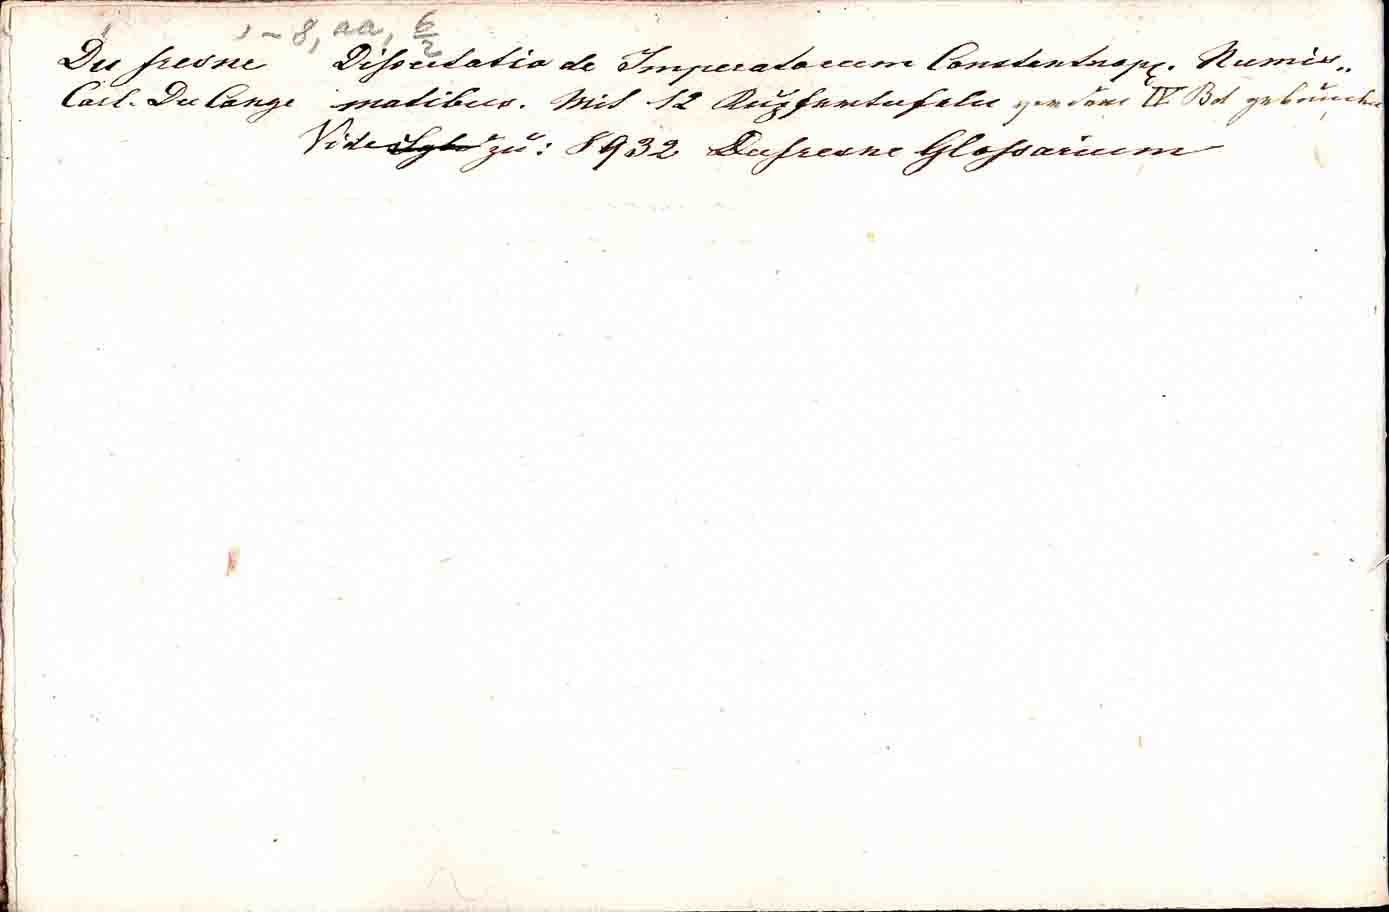 , - 8, aa, 6/2
Du fresne Dissertatio de Imperatorum Constantinopp. Numis„
Carl. Du Cange matibus. Mit 12 Kupfertafeln zu dem IV Bd gebunden
Vide zu: 8932 Dufresne Glossarium